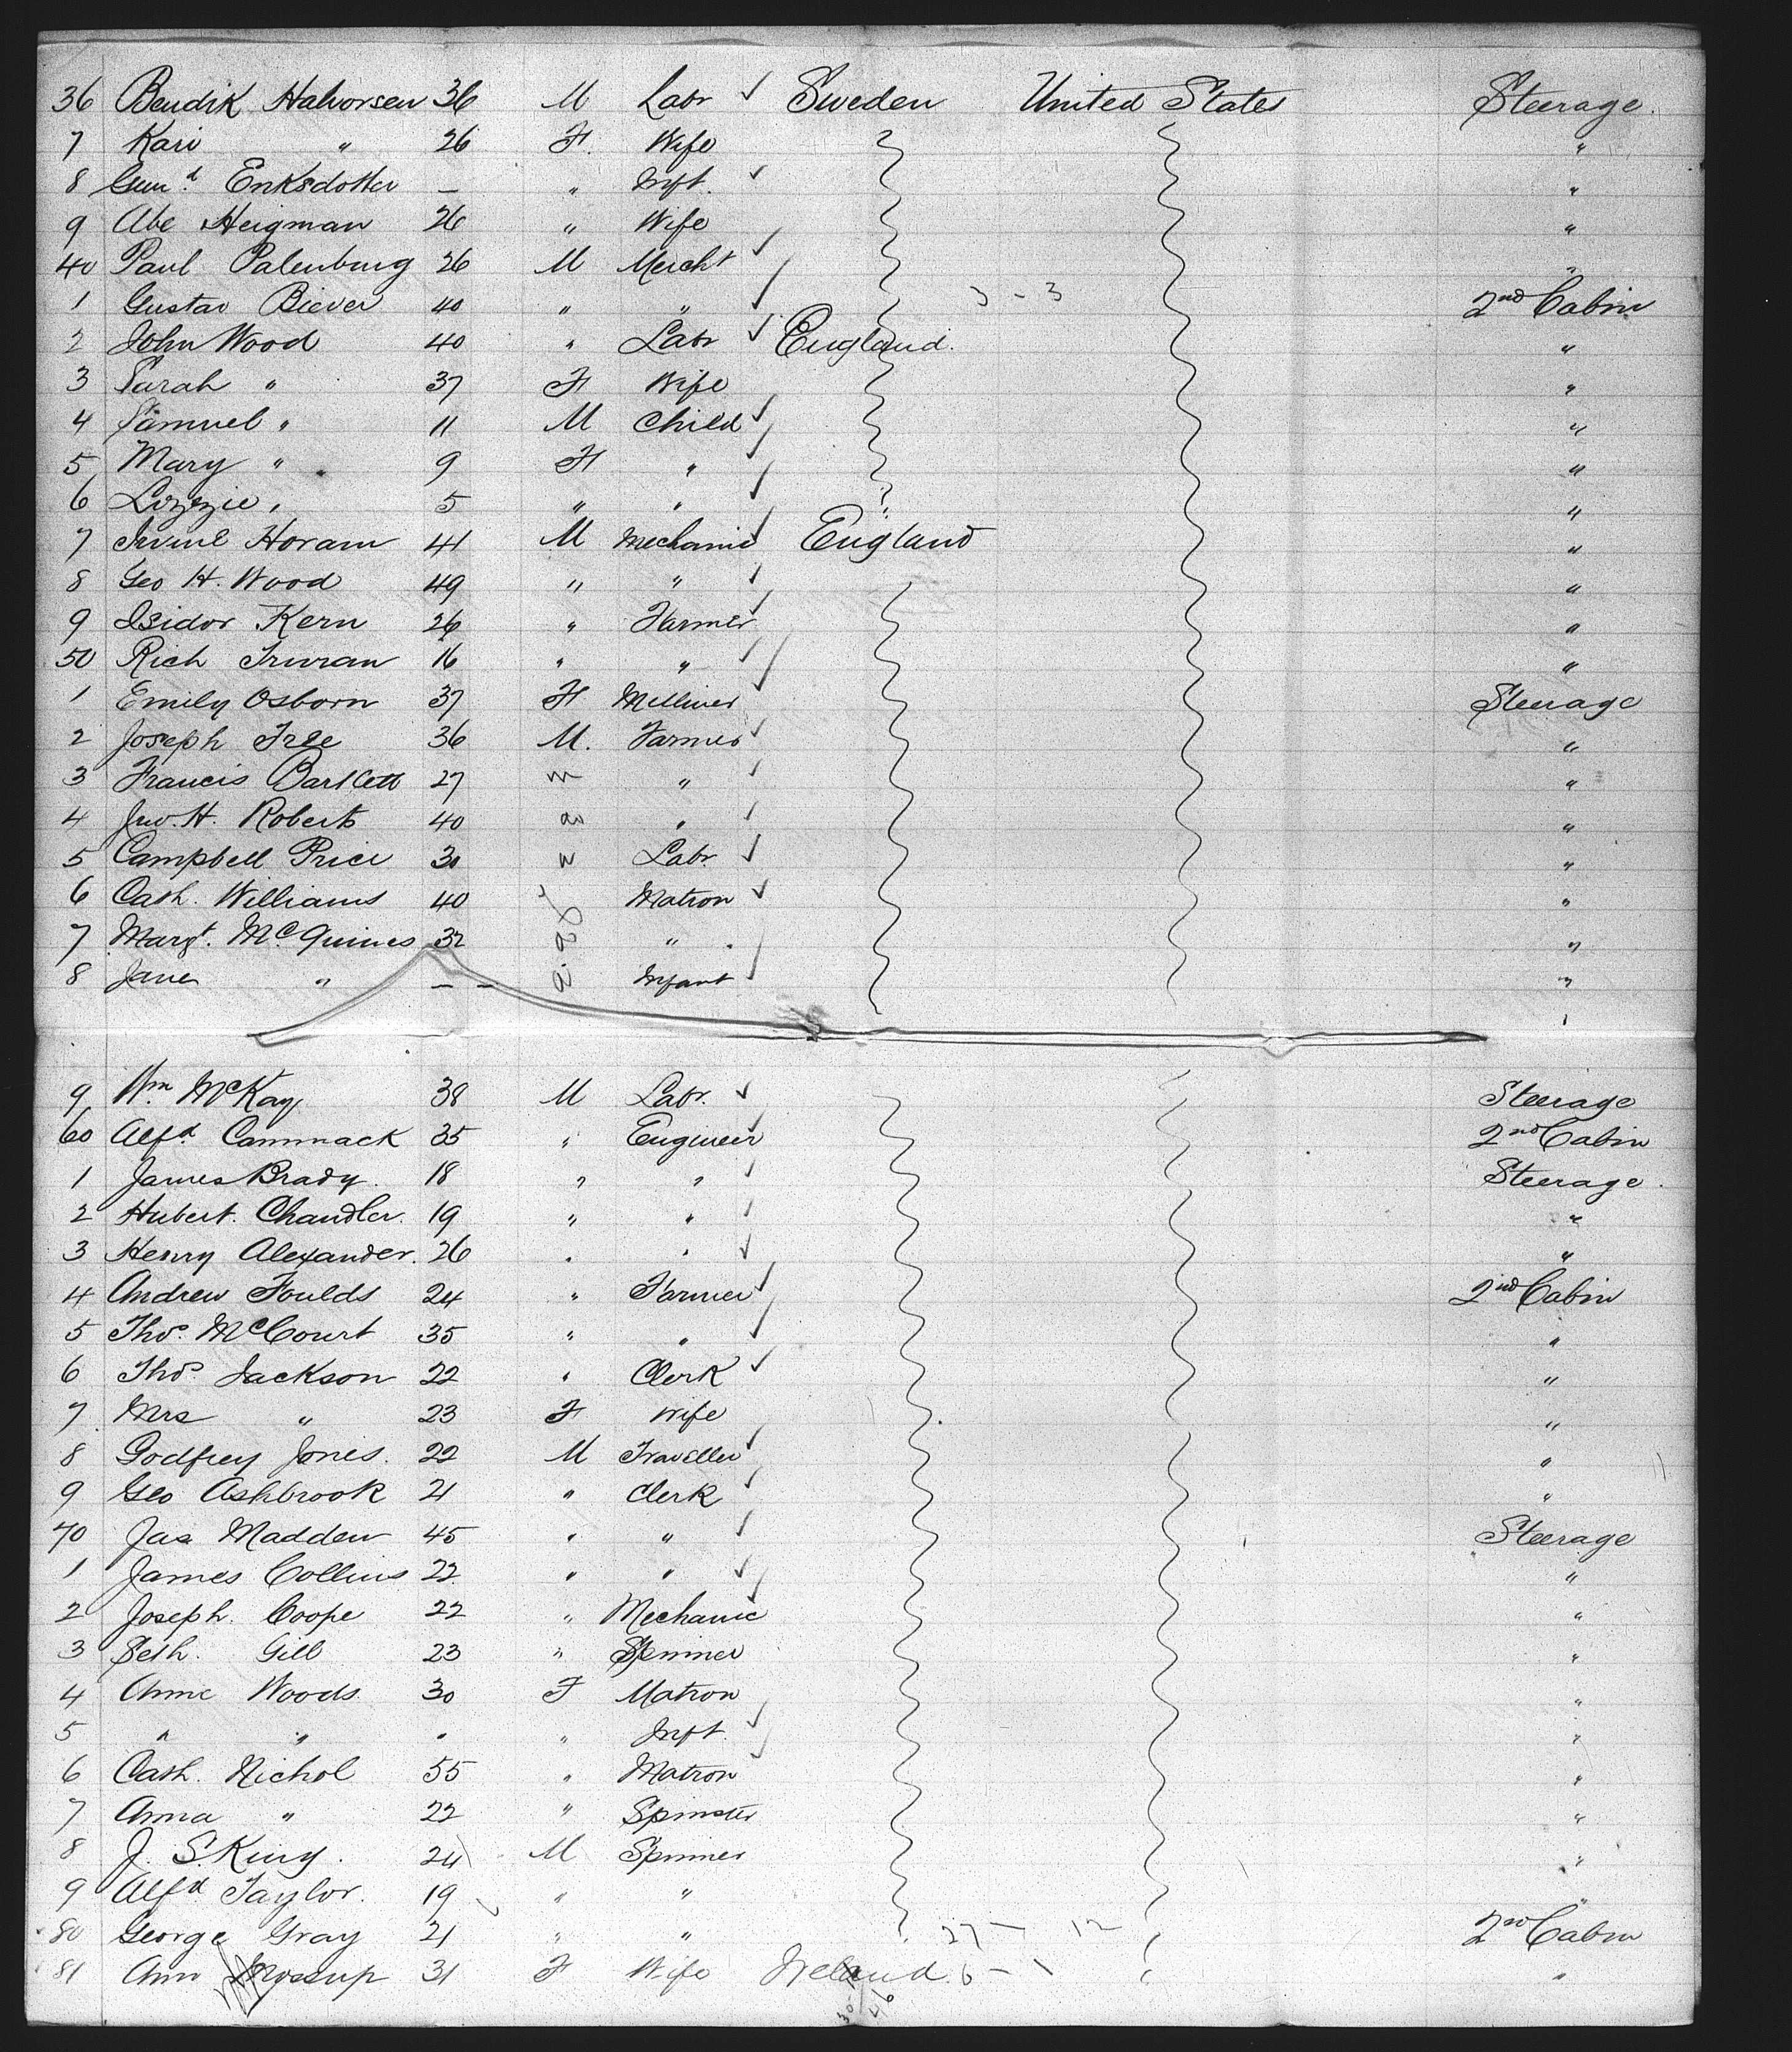 36 Bendik Halvorsen 36 M Labr ✓ Sweden United States Steerage.
7 Kari " 26 F. Wife "
8 Gun.d Eriksdotter — " Inft. ✓ "
9 Abe Heigman 26 " Wife "
40 Paul Palenburg 26 M Mercht ✓ "
1 Gustav Biever 40 " " ✓ 3 - 3 2nd Cabin
2 John Wood 40 " Labr ✓ England. "
3 Sarah " 37 F Wife "
4 Samuel " 11 M Child ✓ "
5 Mary " 9 F " ✓ "
6 Lizzie " 5 " " ✓ "
7 Horam 41 M Mechanic ✓ England "
8 Geo H. Wood 49 " " ✓ "
9 Isidor Kern 26 " Farmer ✓ "
50 Rich 16 " " ✓ "
1 Emily Osborn 37 F Milliner ✓ Steerage
2 Joseph Free 36 M. Farmer ✓ "
3 Francis Bartlett 27 m " ✓ "
4 Jno. H. Roberts 40 " ✓ "
5 Campbell Price 30 Labr. ✓ "
6 Cath. Williams 40 Matron ✓ "
7 Margt. McGuines 32 " ✓ "
8 Jane " — — Infant ✓ "
9 Wm McKay 38 M Labr. ✓ Steerage
60 Alfd Cammack 35 " Engineer ✓ 2nd Cabin
1 James Brady. 18 " " ✓ Steerage.
2 Hubert. Chandler. 19 " " ✓ "
3 Henry Alexander. 26 " " ✓ "
4 Andrew Foulds 24 " Farmer ✓ 2nd Cabin
5 Thos. McCourt 35 " " ✓ "
6 Thos Jackson 22 " Clerk ✓ "
7 Mrs " 23 F Wife "
8 Godfrey Jones. 22 M Traveller ✓ "
9 Geo Ashbrook 21 " Clerk ✓ "
70 Jas Madden 45 " " ✓ Steerage
1 James Collins 22 " " ✓ "
2 Joseph. Coope 22 " Mechanic ✓ "
3 Seth. Gill 23 " Spinner "
4 Anne Woods 30 F Matron "
5 " " " " Inft. ✓ "
6 Cath. Nichol 55 " Matron ✓ "
7 Anna " 22 " Spinster "
8 J. S. King. 24 M Spinner "
9 Alfd Taylor. 19 " " "
80 George Gray 21 " " 27 — 12 2nd Cabin
81 Ann 31 F Wife Ireland 6 - 1 "
30 46